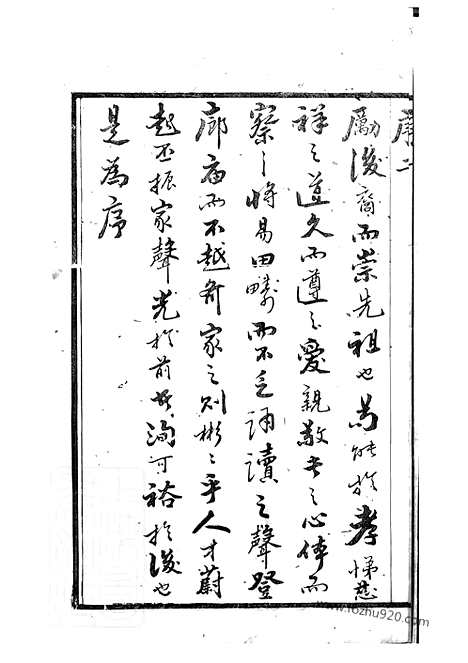 序 二
勵後裔而崇先祖也苟能於孝悌慈
祥之道久而遵之愛親敬長之心体而
察之將易田疇而不乏誦讀之聲登
廊庙而不越齐家之则彬之乎人才蔚
起丕振家聲光於前者洵可裕於後也
是為序
www.fozhu920.com